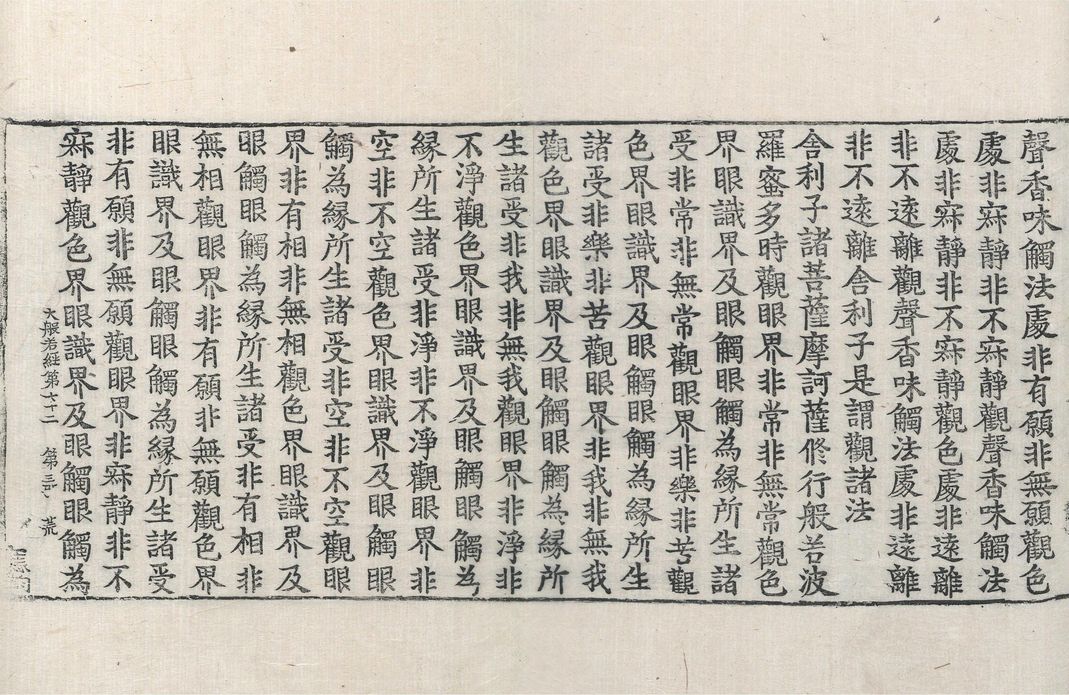 聲香味觸法處非有願非無願觀色
處非㝛靜非不㝛靜觀聲香味觸法
處非㝛靜非不㝛靜觀色處非遠離
非不遠離觀聲香味觸法處非遠離
非不遠離舍利子是謂觀諸法
舍利子諸菩薩摩訶薩修行般若波
羅蜜多時觀眼界非常非無常觀色
界眼識界及眼觸眼觸為縁所生諸
受非常非無常觀眼界非樂非苦觀
色界眼識界及眼觸眼觸為縁所生
諸受非樂非苦觀眼界非我非無我
觀色界眼識界及眼觸眼觸為縁所
生諸受非我非無我觀眼界非淨非
不淨觀色界眼識界及眼觸眼觸為
縁所生諸受非淨非不淨觀眼界非
空非不空觀色界眼識界及眼觸眼
觸為縁所生諸受非空非不空觀眼
界非有相非無相觀色界眼識界及
眼觸眼觸為縁所生諸受非有相非
無相觀眼界非有願非無願觀色界
眼識界及眼觸眼觸為縁所生諸受
非有願非無願觀眼界非㝛靜非不
㝛靜觀色界眼識界及眼觸眼觸為
大般若經第七十二 第三 荒